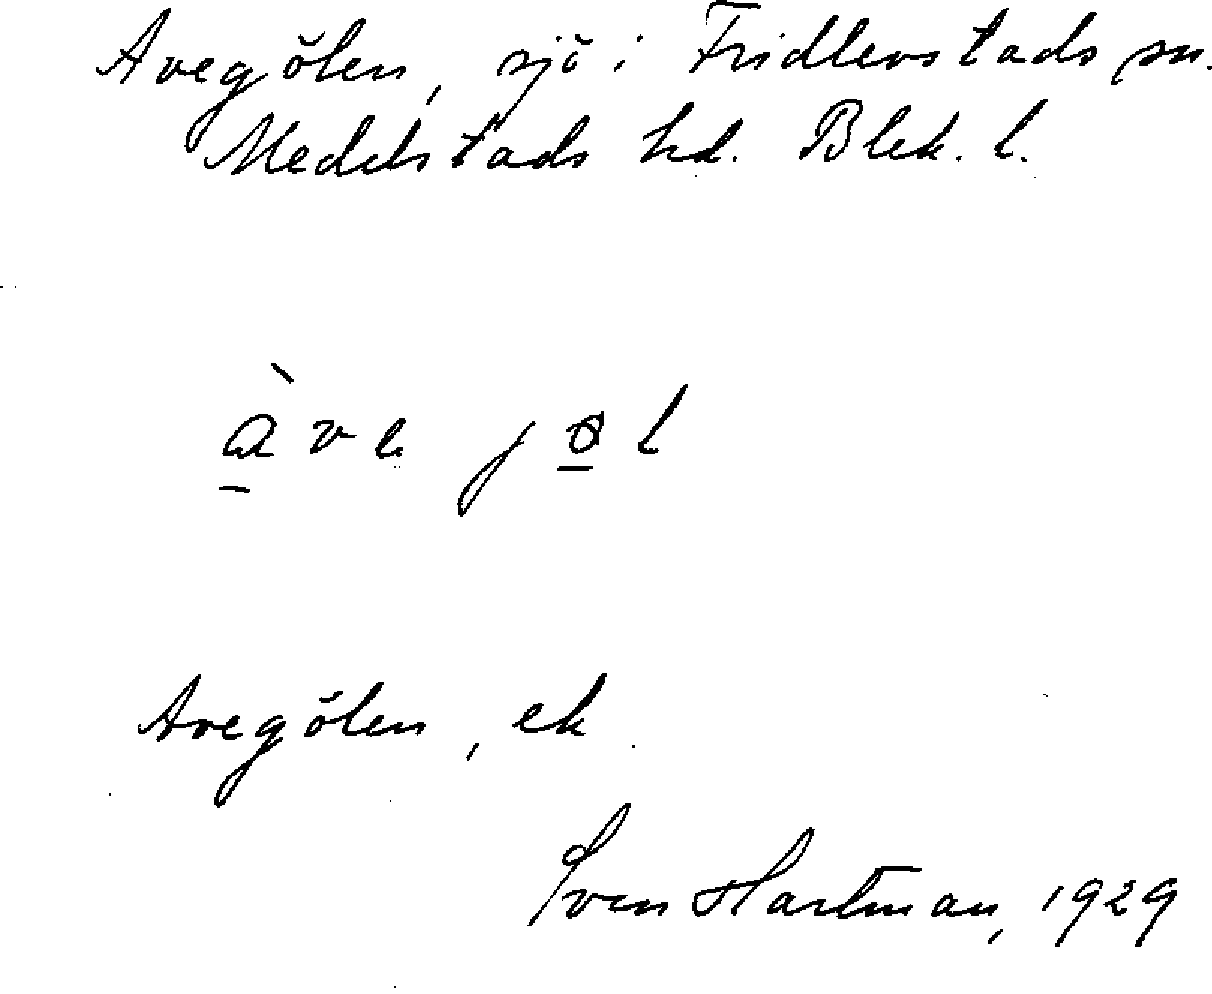 Avegölen, sjö i Fridlevstads sn.
Medelstads hd. Blek. l.
àve jøl
Avegölen, ek
Sven Hartman, 1929